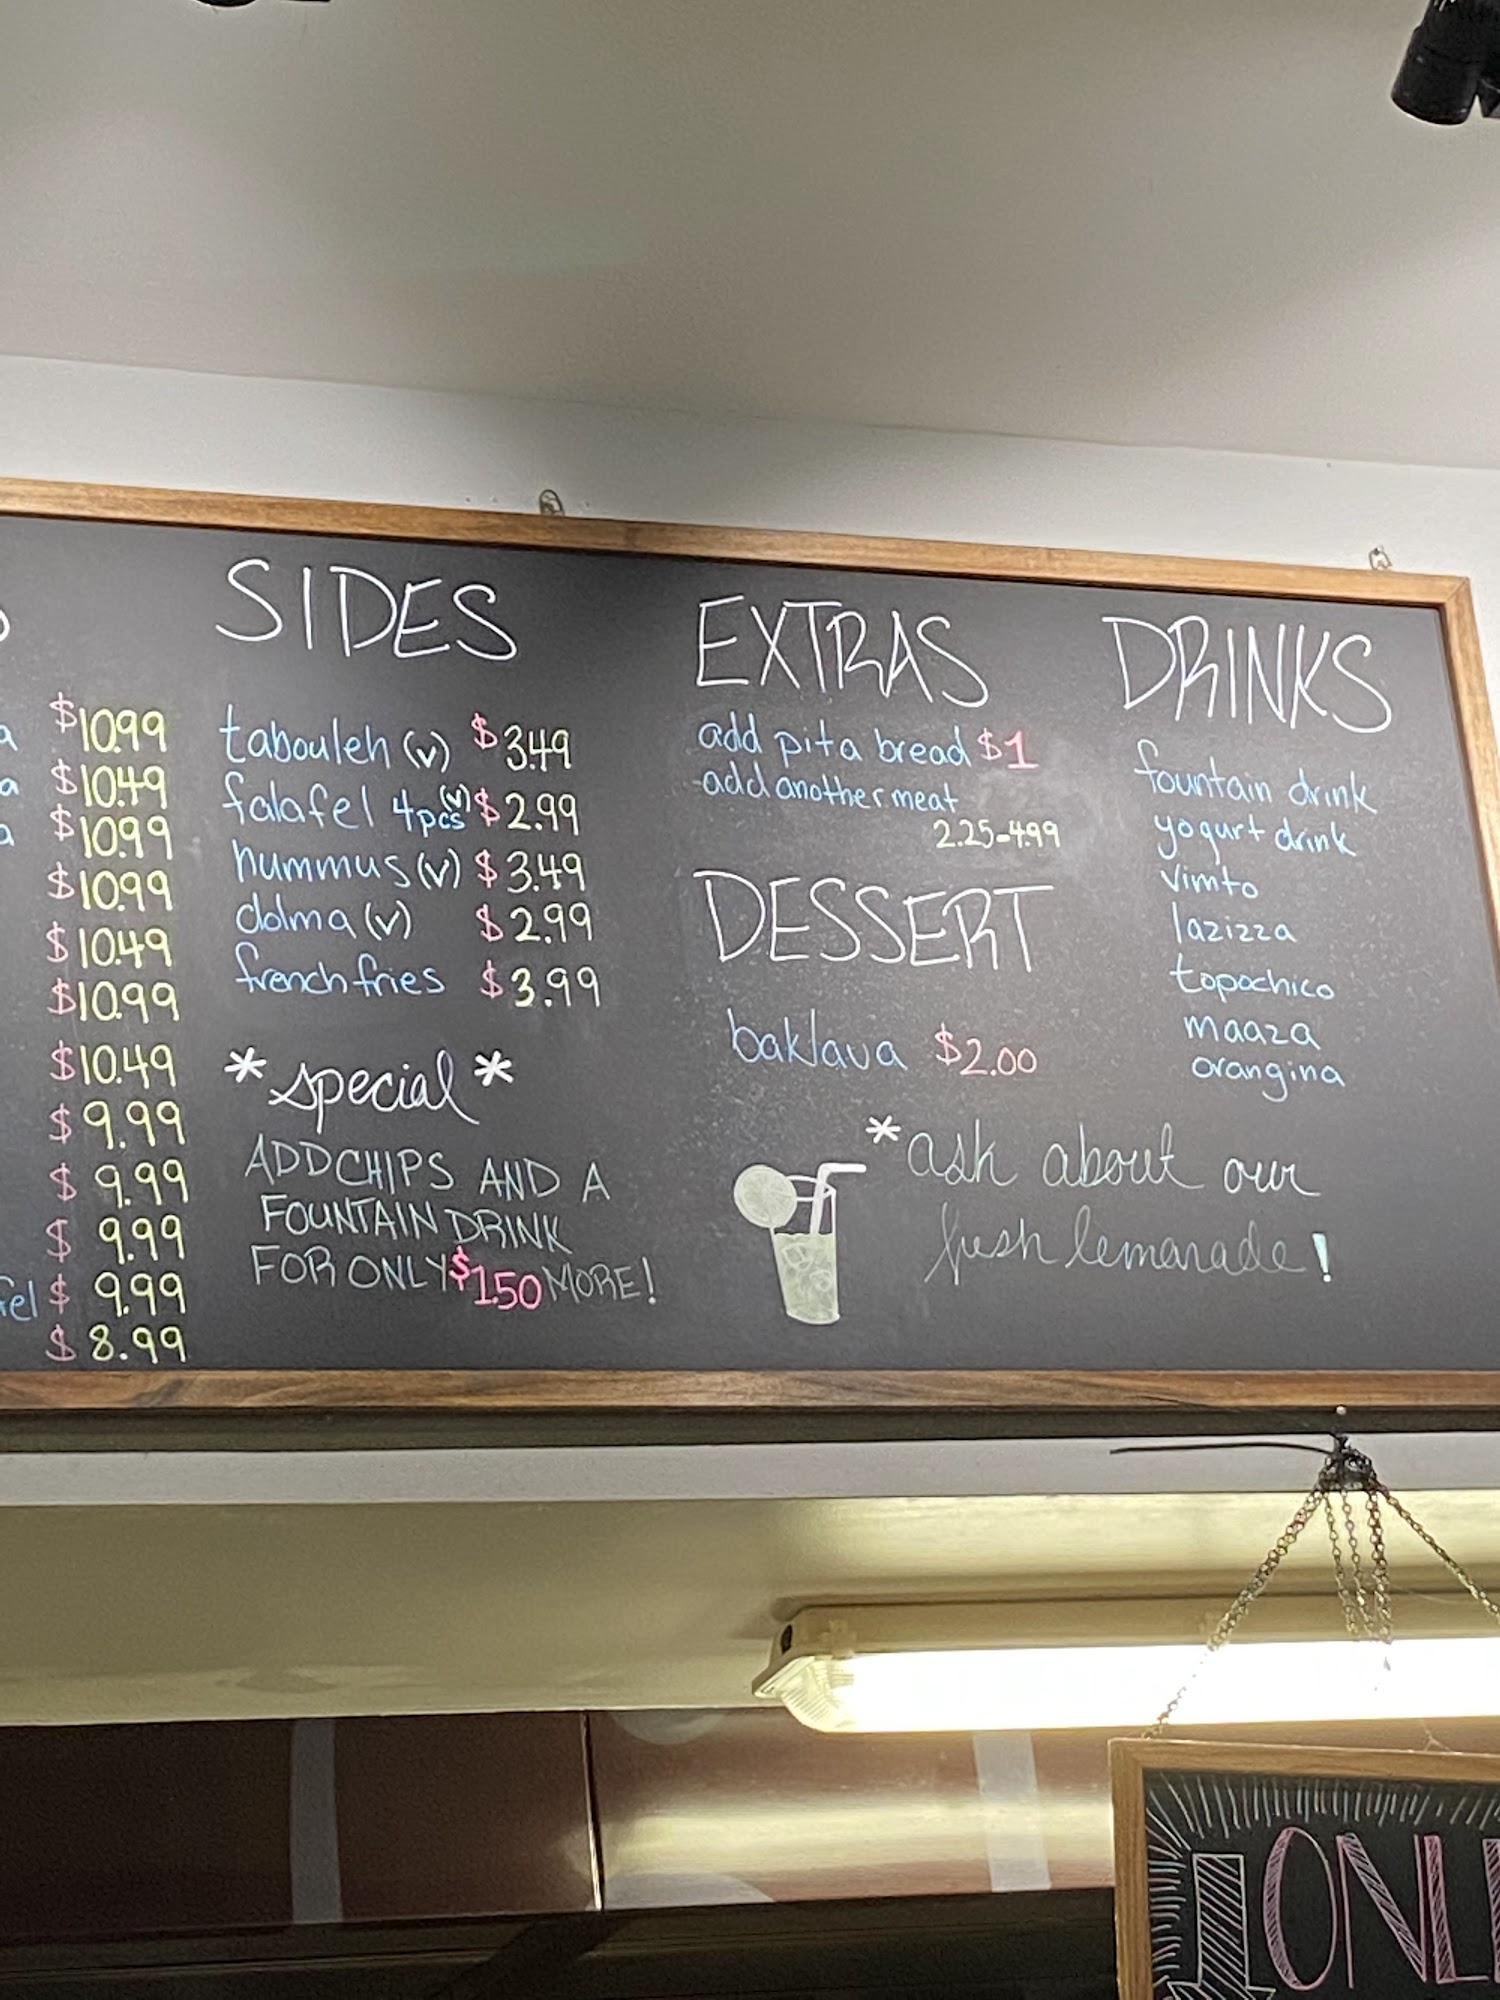 $10.99
$10.49
$10.99
$10.99
$10.49
$10.99
$10.49
$ 9.99
$ 9.99
$ 9.99
$ 9.99
$ 8.99
SIDES
tabouleh (v) $3.49
falafel 4pcs (v) $2.99
hummus (v) $3.49
dolma (v) $2.99
french fries $3.99
*special*
ADD CHIPS AND A
FOUNTAIN DRINK
FOR ONLY $1.50 MORE!
EXTRAS
add pita bread $1
-add another meat
2.25-4.99
DESSERT
baklava $2.00
DRINKS
fountain drink
yogurt drink
vimto
lazizza
topochico
maaza
orangina
*ask about our
fresh lemonade!